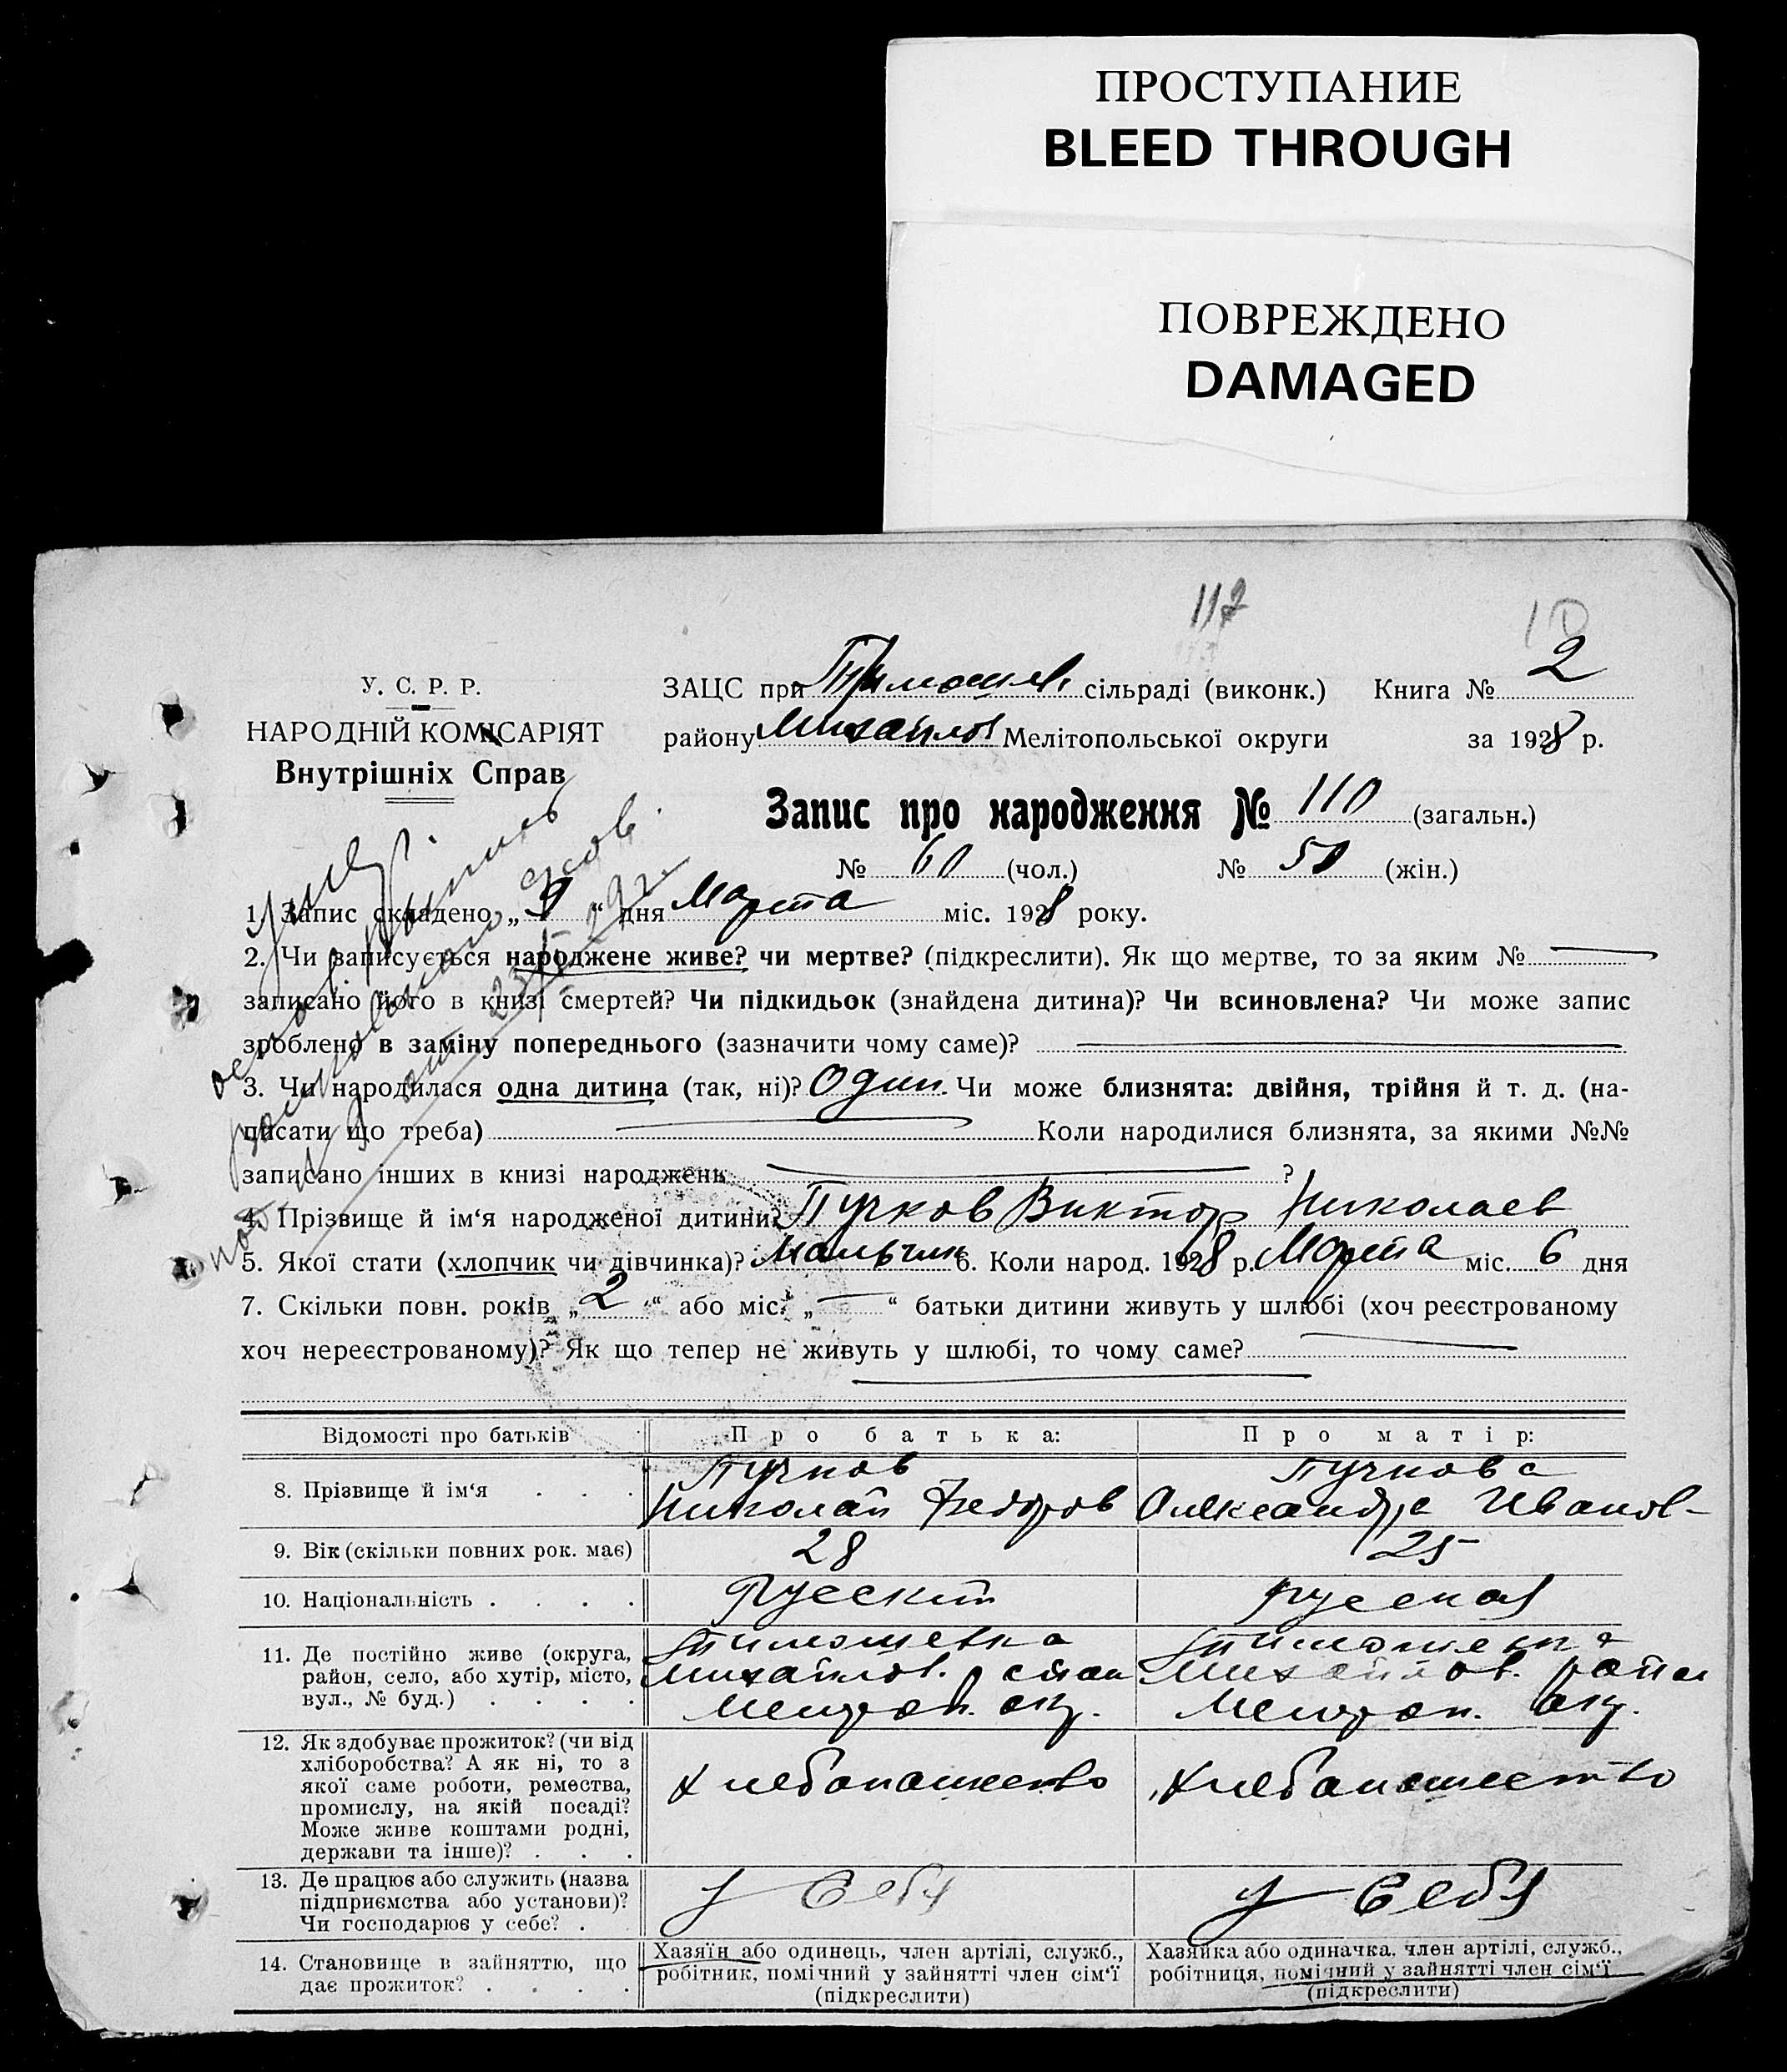 ПРОСТУПАНИЕ
BLEED THROUGH
ПОВРЕЖДЕНО
DAMAGED
117
10
У. С. Р. Р.
НАРОДНІЙ КОМІСАРІЯТ
Внутрішніх Справ
ЗАЦС при Тимошев. сільраді (виконк.) Книга № 2
району Михайлов Мелітопольської округи за 1928 р.
Запис про народження № 110 (загальн.)
№ 60 (чол.) № 50 (жін.)
Умер.
1. Запис складено „ 9 “ дня Марта міс. 1928 року.
2. Чи записується народжене живе? чи мертве? (підкреслити). Як що мертве, то за яким №
записано його в книзі смертей? Чи підкидьок (знайдена дитина)? Чи всиновлена? Чи може запис
зроблено в заміну попереднього (зазначити чому саме)?
3. Чи народилася одна дитина (так, ні)? Один. Чи може близнята: двійня, трійня й т. д. (на-
писати що треба) Коли народилися близнята, за якими №№
записано інших в книзі народжень ?
4. Прізвище й ім‘я народженої дитини? Пучков Виктор Николаев
5. Якої стати (хлопчик чи дівчинка)? Мальчик 6. Коли народ. 1928 р. Марта міс. 6 дня
7. Скільки повн. років „ 2 “ або міс. „ “ батьки дитини живуть у шлюбі (хоч реєстрованому
хоч нереєстрованому)? Як що тепер не живуть у шлюбі, то чому саме?
Відомості про батьків Про батька: Про матір:
8. Прізвище й ім‘я . . . Пучков Николай Федоров Пучкова Александра Иванов-
9. Вік (скільки повних рок. має) 28 25
10. Національність . . . . Русский русская
11. Де постійно живе (округа,
район, село, або хутір, місто,
вул., № буд.) . . . .
Тимошевка
Михайлов. район
Мелитоп. окр.
Тимошевка
Михайлов. район
Мелитоп. окр.
12. Як здобуває прожиток? (чи від
хліборобства? А як ні, то з
якої саме роботи, ремества,
промислу, на якій посаді?
Може живе коштами родні,
держави та інше)? . . .
Хлебопашество Хлебопашество
13. Де працює або служить (назва
підприємства або установи)?
Чи господарює у себе? .
у себя у себя
14. Становище в зайняттю, що
дає прожиток? . . . .
Хазяїн або одинець, член артілі, служб.,
робітник, помічний у зайнятті член сім‘ї
(підкреслити)
Хазяйка або одиначка, член артілі, служб.,
робітниця, помічний у зайнятті член сім‘ї
(підкреслити)